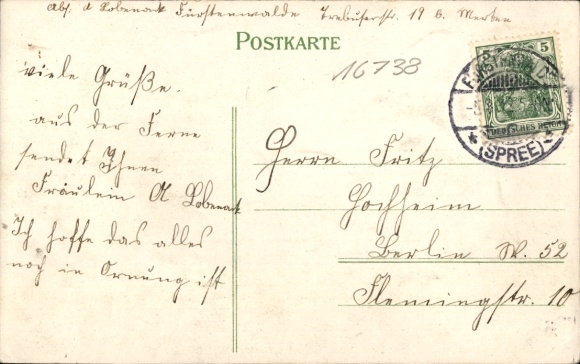 Abs. A Lobenack Fürstenwalde Trebuserstr. 19 b. Merten
POSTKARTE
16738
viele Grüße.
aus der Ferne
sendet Ihnen
Fräulein A Lobenack
Ich hoffe das alles
noch in Ornung ist
5
DEUTSCHES REICH
(SPREE)
Herrn Fritz
Hochheim
Berlin W. 52
Flemingstr. 10